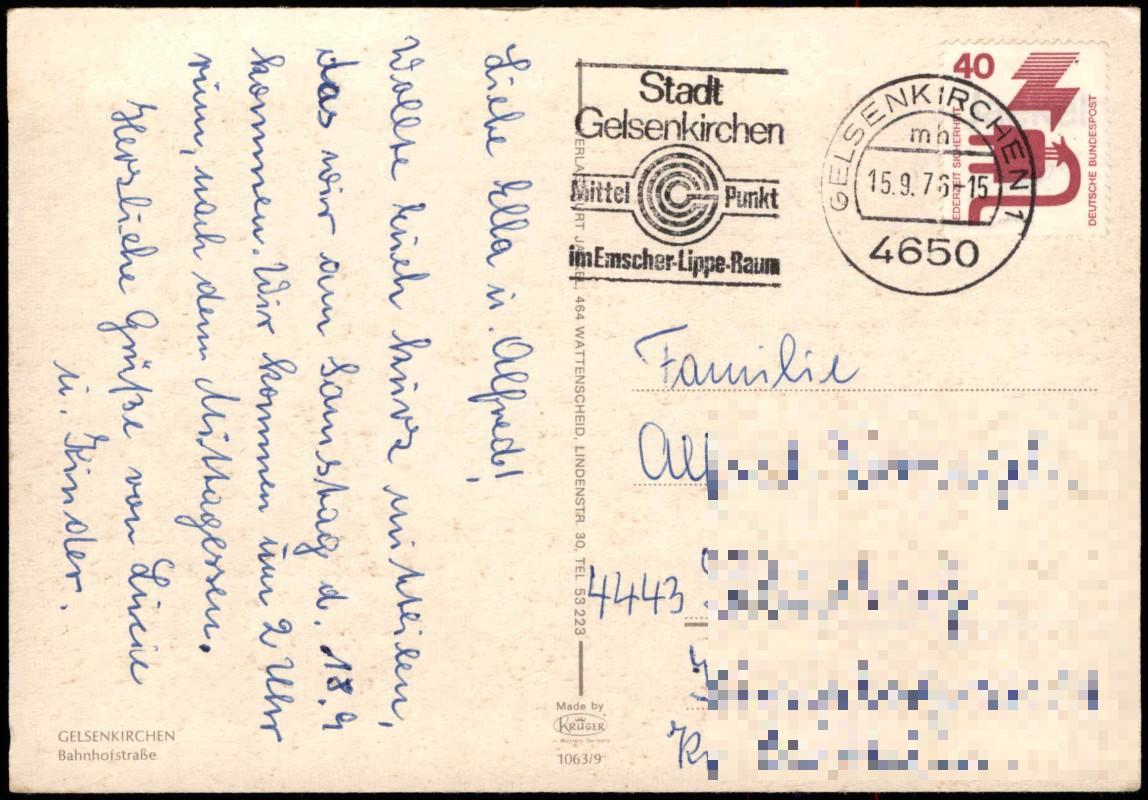 Liebe Ella u. Alfred!
Wollte Euch kurz mitteilen,
das wir am Samstag d. 18.9
kommen. Wir kommen um 2 Uhr
rum, nach dem Mittagessen.
Herzliche Grüße von
u. Kinder.
GELSENKIRCHEN
Bahnhofstraße
JAEGEL, 464 WATTENSCHEID, LINDENSTR. 30, TEL 53 223
Made by
KRÜGER
Western Germany
1063/9
Stadt
Gelsenkirchen
Mittel Punkt
im Emscher-Lippe-Raum
GELSENKIRCHEN 1
mh
15.9.76-15
4650
40
JEDERZEIT SICHERHEIT
DEUTSCHE BUNDESPOST
Familie
4443